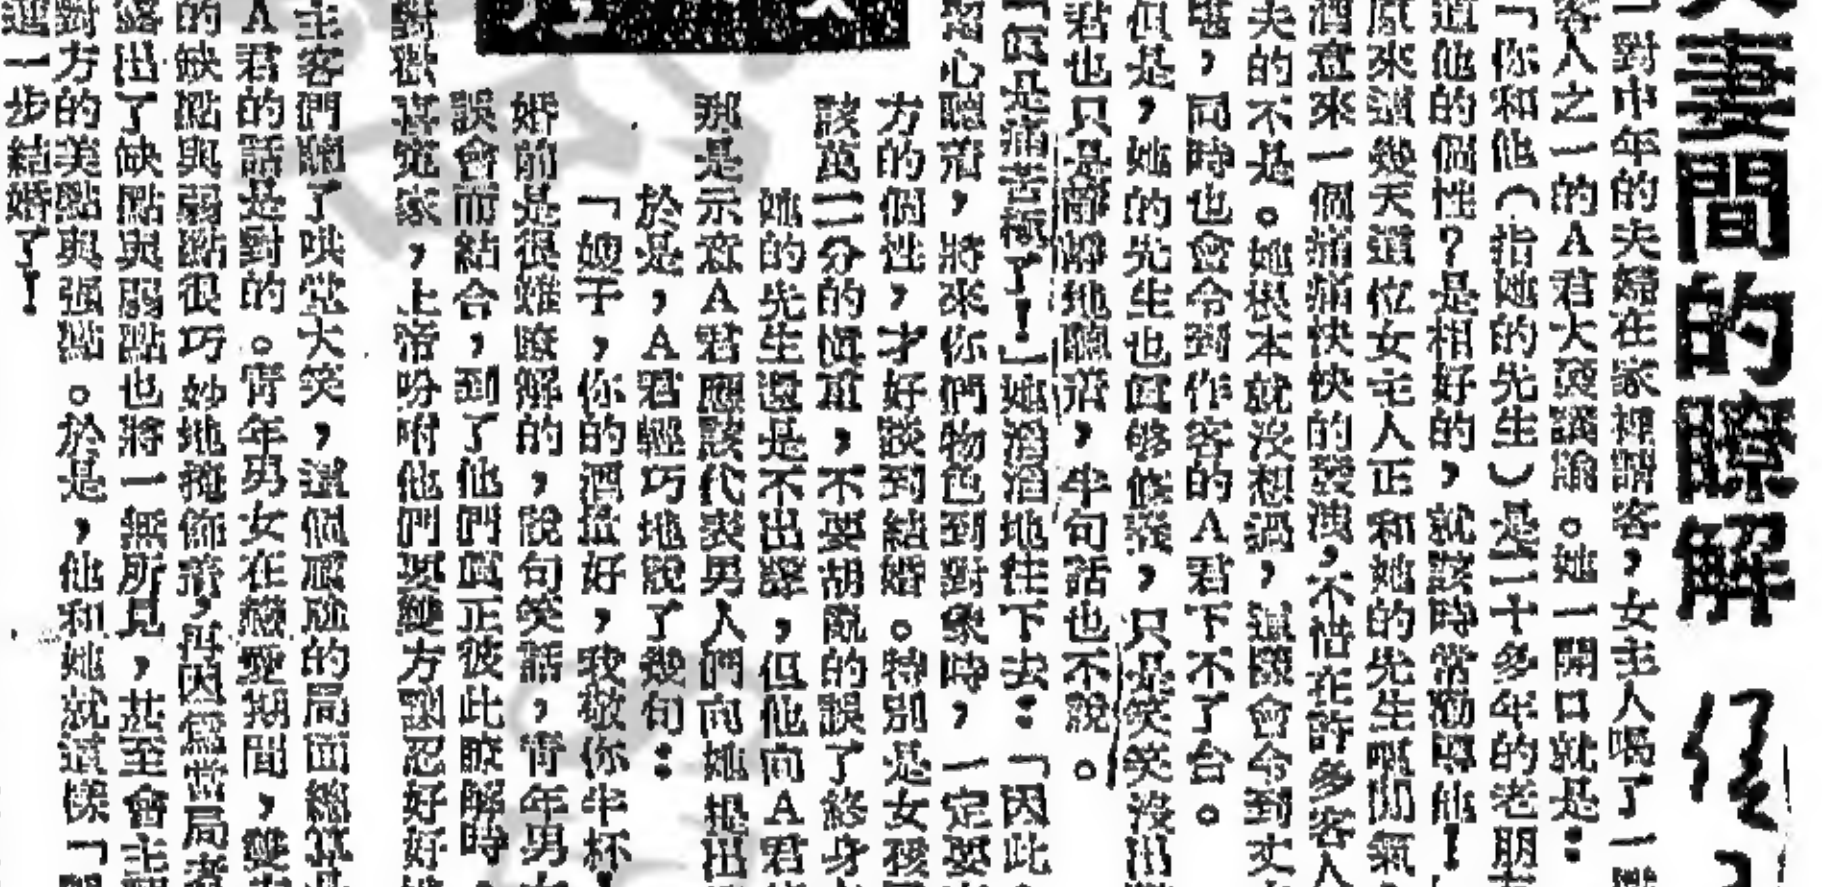 夫妻間的瞭解
一對中年的夫婦在家裡請客，女主人喝了一
客人之一的A君大發議論。她一開口就是：
「你和他（指她的先生）是二十多年的老朋友
道他的個性？是相好的，就該時常勸導他！
原來這幾天這位女主人正和她的先生嘔閒氣
酒意來一個痛痛快快的發洩，不惜在許多客人
夫的不是。她根本就沒想過，這樣會令到丈
，同時也會令到作客的A君下不了台。
但是，她的先生也真够修養，只是笑笑沒出聲
君也只是靜靜地聽着，半句話也不說。
「真是痛苦極了！」她滔滔地往下去：「因此
心聽着，將來你們物色到對象時，一定要
方的個性，才好談到結婚。特別是女孩
該萬二分的慎重，不要胡亂的誤了終身
她的先生還是不出聲，但他向A君
那是示意A君應該代表男人們向她提出
於是，A君輕巧地說了幾句：
「嫂子，你的酒量好，我敬你半杯！
婚前是很難瞭解的，說句笑話，青年男
誤會而結合，到了他們真正彼此瞭解時
對歡喜寃家，上帝吩咐他們要雙方謝忍好好
主客們聽了哄堂大笑，這個尷尬的局面總算
A君的話是對的。青年男女在戀愛期間，雙
的缺點與弱點很巧妙地掩飾着，再因爲當局者
露出了缺點與弱點也將一無所見，甚至會主
對方的美點與强點。於是，他和她就這樣「
進一步結婚了！